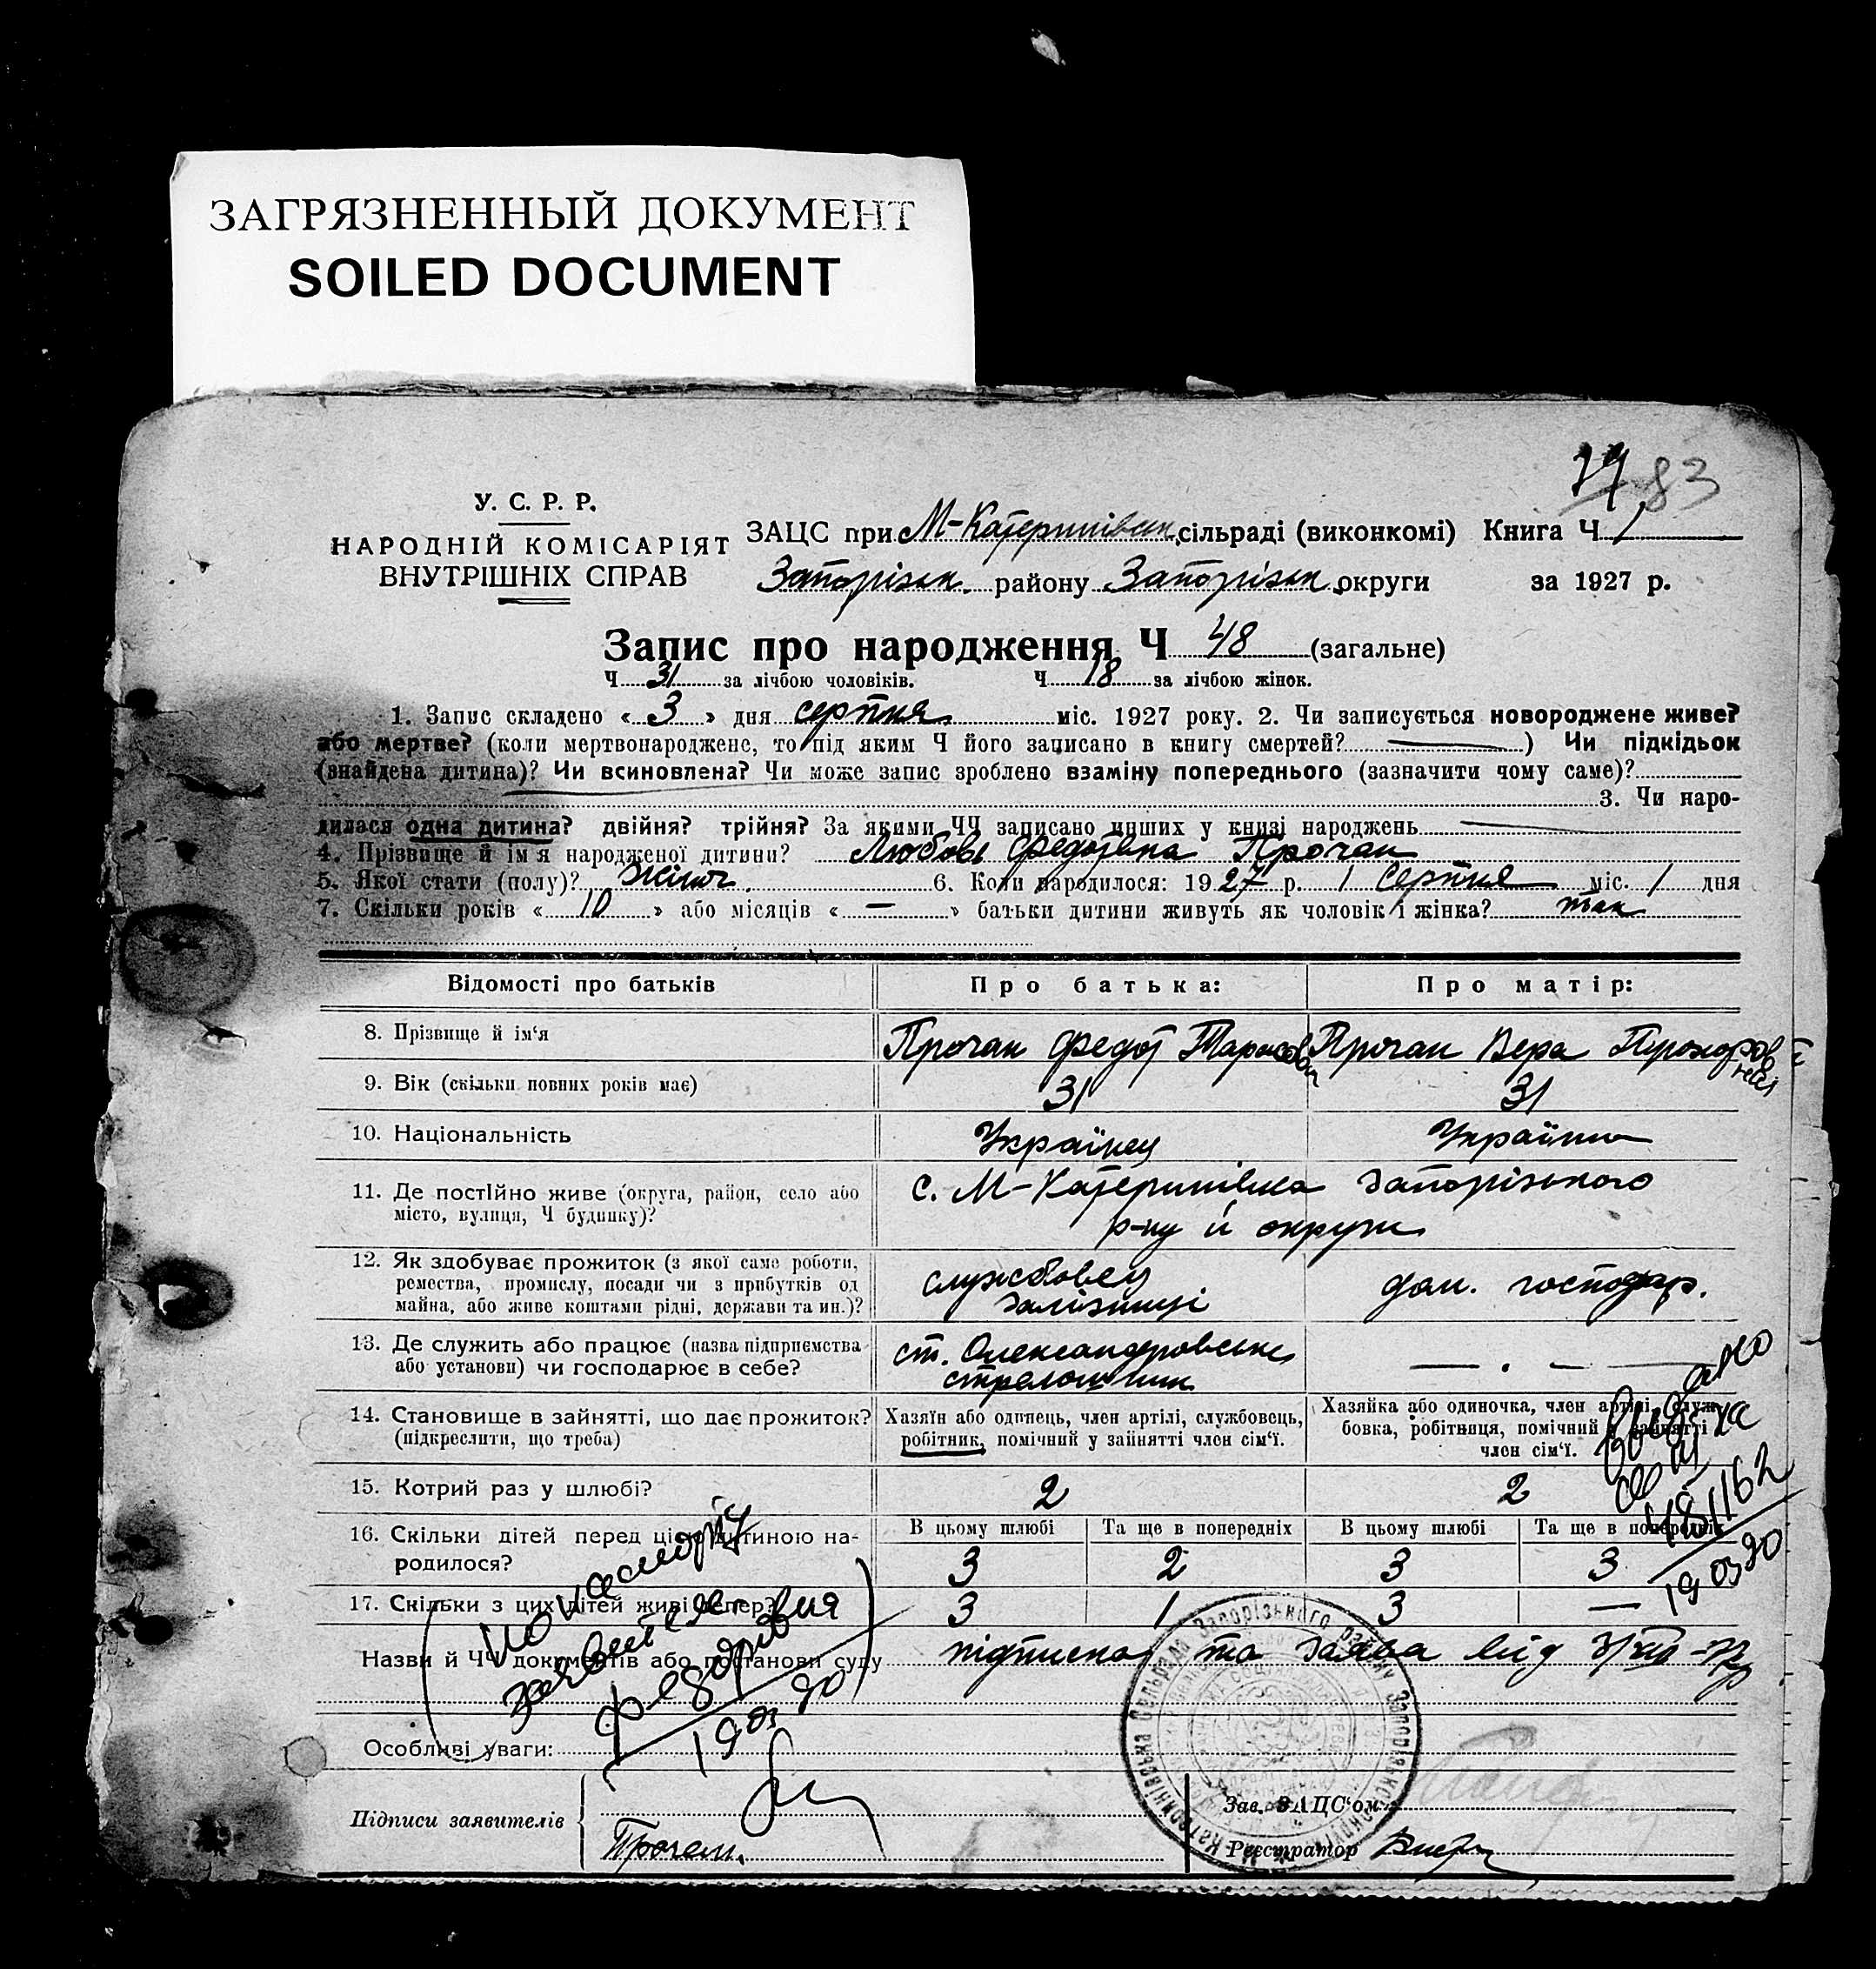 ЗАГРЯЗНЕННЫЙ ДОКУМЕНТ
SOILED DOCUMENT
83
У. С. Р. Р.
НАРОДНІЙ КОМІСАРІЯТ
ВНУТРІШНІХ СПРАВ
ЗАЦС при М-Катеринівськ. сільраді (виконкомі) Книга Ч 1
Запорізьк. району Запорізьк. округи за 1927 р.
Запис про народження Ч 48 (загальне)
Ч 31 за лічбою чоловіків. Ч 18 за лічбою жінок.
1. Запис складено « 3 » дня серпня міс. 1927 року. 2. Чи записується новороджене живе?
або мертве? (коли мертвонароджене, то під яким Ч його записано в книгу смертей? ) Чи підкідьок
(знайдена дитина)? Чи всиновлена? Чи може запис зроблено взаміну попереднього (зазначити чому саме)?
3. Чи наро-
дилася одна дитина? двійня? трійня? За якими ЧЧ записано инших у книзі народжень
4. Прізвище й ім'я народженої дитини? Любовь Федотівна Прочан
5. Якої стати (полу)? жіноч. 6. Коли народилося: 1927 р. 1 серпня міс. 1 дня
7. Скільки років « 10 » або місяців « — » батьки дитини живуть як чоловік і жінка? так
Відомості про батьків Про батька: Про матір:
8. Прізвище й ім'я Прочан Федот Тарасович Прочан Вера Прохоровна
9. Вік (скільки повних років має) 31 31
10. Національність Українец Українка
11. Де постійно живе (округа, район, село або с. М-Катеринівка Запорізького
місто, вулиця, Ч будинку)? р-ну й округи
12. Як здобуває прожиток (з якої саме роботи, службовец дом. господар.
ремества, промислу, посади чи з прибутків од залізниці
майна, або живе коштами рідні, держави та ин.)?
13. Де служить або працює (назва підприємства ст. Олександровськ
або установи) чи господарює в себе? стрелошник
14. Становище в зайнятті, що дає прожиток? Хазяїн або одинець, член артілі, службовець, Хазяйка або одиночка, член артілі, служ-
(підкреслити, що треба) робітник, помічний у зайнятті член сім'ї. бовка, робітниця, помічний у зайнятті
член сім'ї.
15. Котрий раз у шлюбі? 2 2
16. Скільки дітей перед цією дитиною на- В цьому шлюбі Та ще в попередніх В цьому шлюбі Та ще в попередніх
родилося? 3 2 3 3
17. Скільки з цих дітей живі тепер? 3 1 3 —
Назви й ЧЧ документів або постанови суду підписка та заява від 3/VIII-27 р
19 03 90
Особливі уваги:
19 03 90
Підписи заявителів Прочан.
Зав. ЗАЦС'ом
Реєстратор